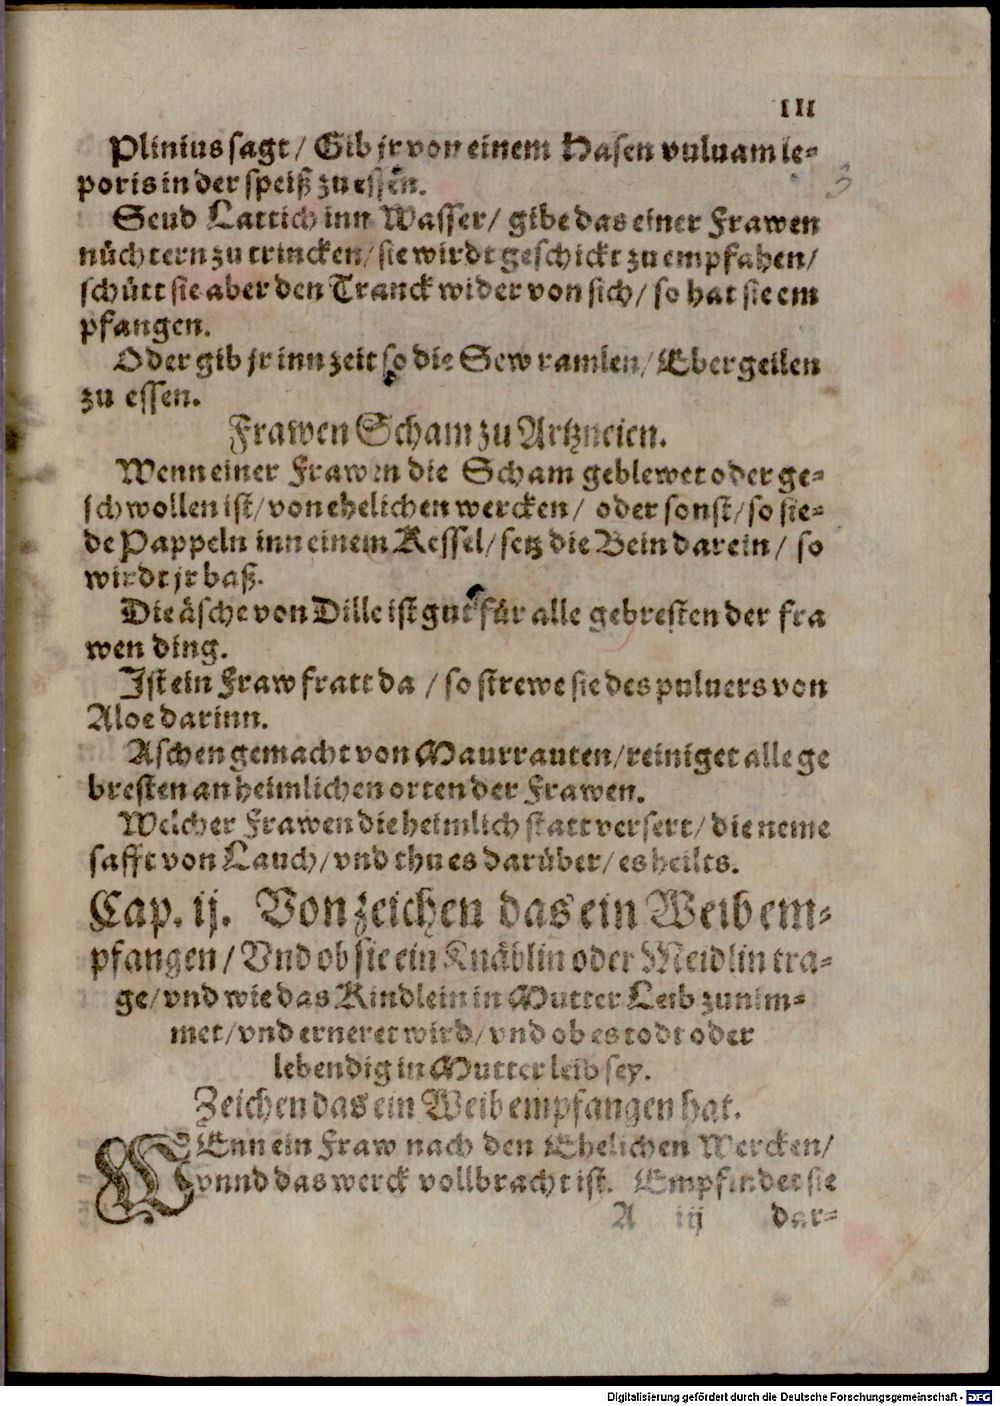 III
3
Plinius sagt/ Gib jr von einem Hasen vuluam le⸗
poris in der speiß zu essen.
Seud Lattich inn Wasser/ gibe das einer Frawen
nüchtern zu trincken/ sie wirdt geschickt zu empfahen/
schütt sie aber den Tranck wider von sich/ so hat sie em
pfangen.
Oder gib jr inn zeit so die Sew ramlen/ Ebergeilen
zu essen.
Frawen Scham zu Artzneien.
Wenn einer Frawen die Scham geblewet oder ge⸗
schwollen ist/ von ehelichen wercken/ oder sonst/ so sie⸗
de Pappeln inn einem Kessel/ setz die Bein darein/ so
wirdt jr baß.
Die äsche von Dille ist gut für alle gebresten der fra
wen ding.
Ist ein Fraw fratt da / so strewe sie des puluers von
Aloe darinn.
Aschen gemacht von Maurrauten/ reiniget alle ge
bresten an heimlichen orten der Frawen.
Welcher Frawen die heimlich statt versert/ die neme
safft von Lauch/ vnd thu es darüber/ es heilts.
Cap. ij. Von zeichen das ein Weib em⸗
pfangen/ Vnd ob sie ein Knäblin oder Meidlin tra⸗
ge/ vnd wie das Kindlein in Mutter Leib zunim⸗
met/ vnd erneret wird/ vnd ob es todt oder
lebendig in Mutter leib sey.
Zeichen das ein Weib empfangen hat.
WEnn ein Fraw nach den Ehelichen Wercken/
vnnd das werck vollbracht ist. Empfindet sie
A iij dar⸗
Digitalisierung gefördert durch die Deutsche Forschungsgemeinschaft - DFG